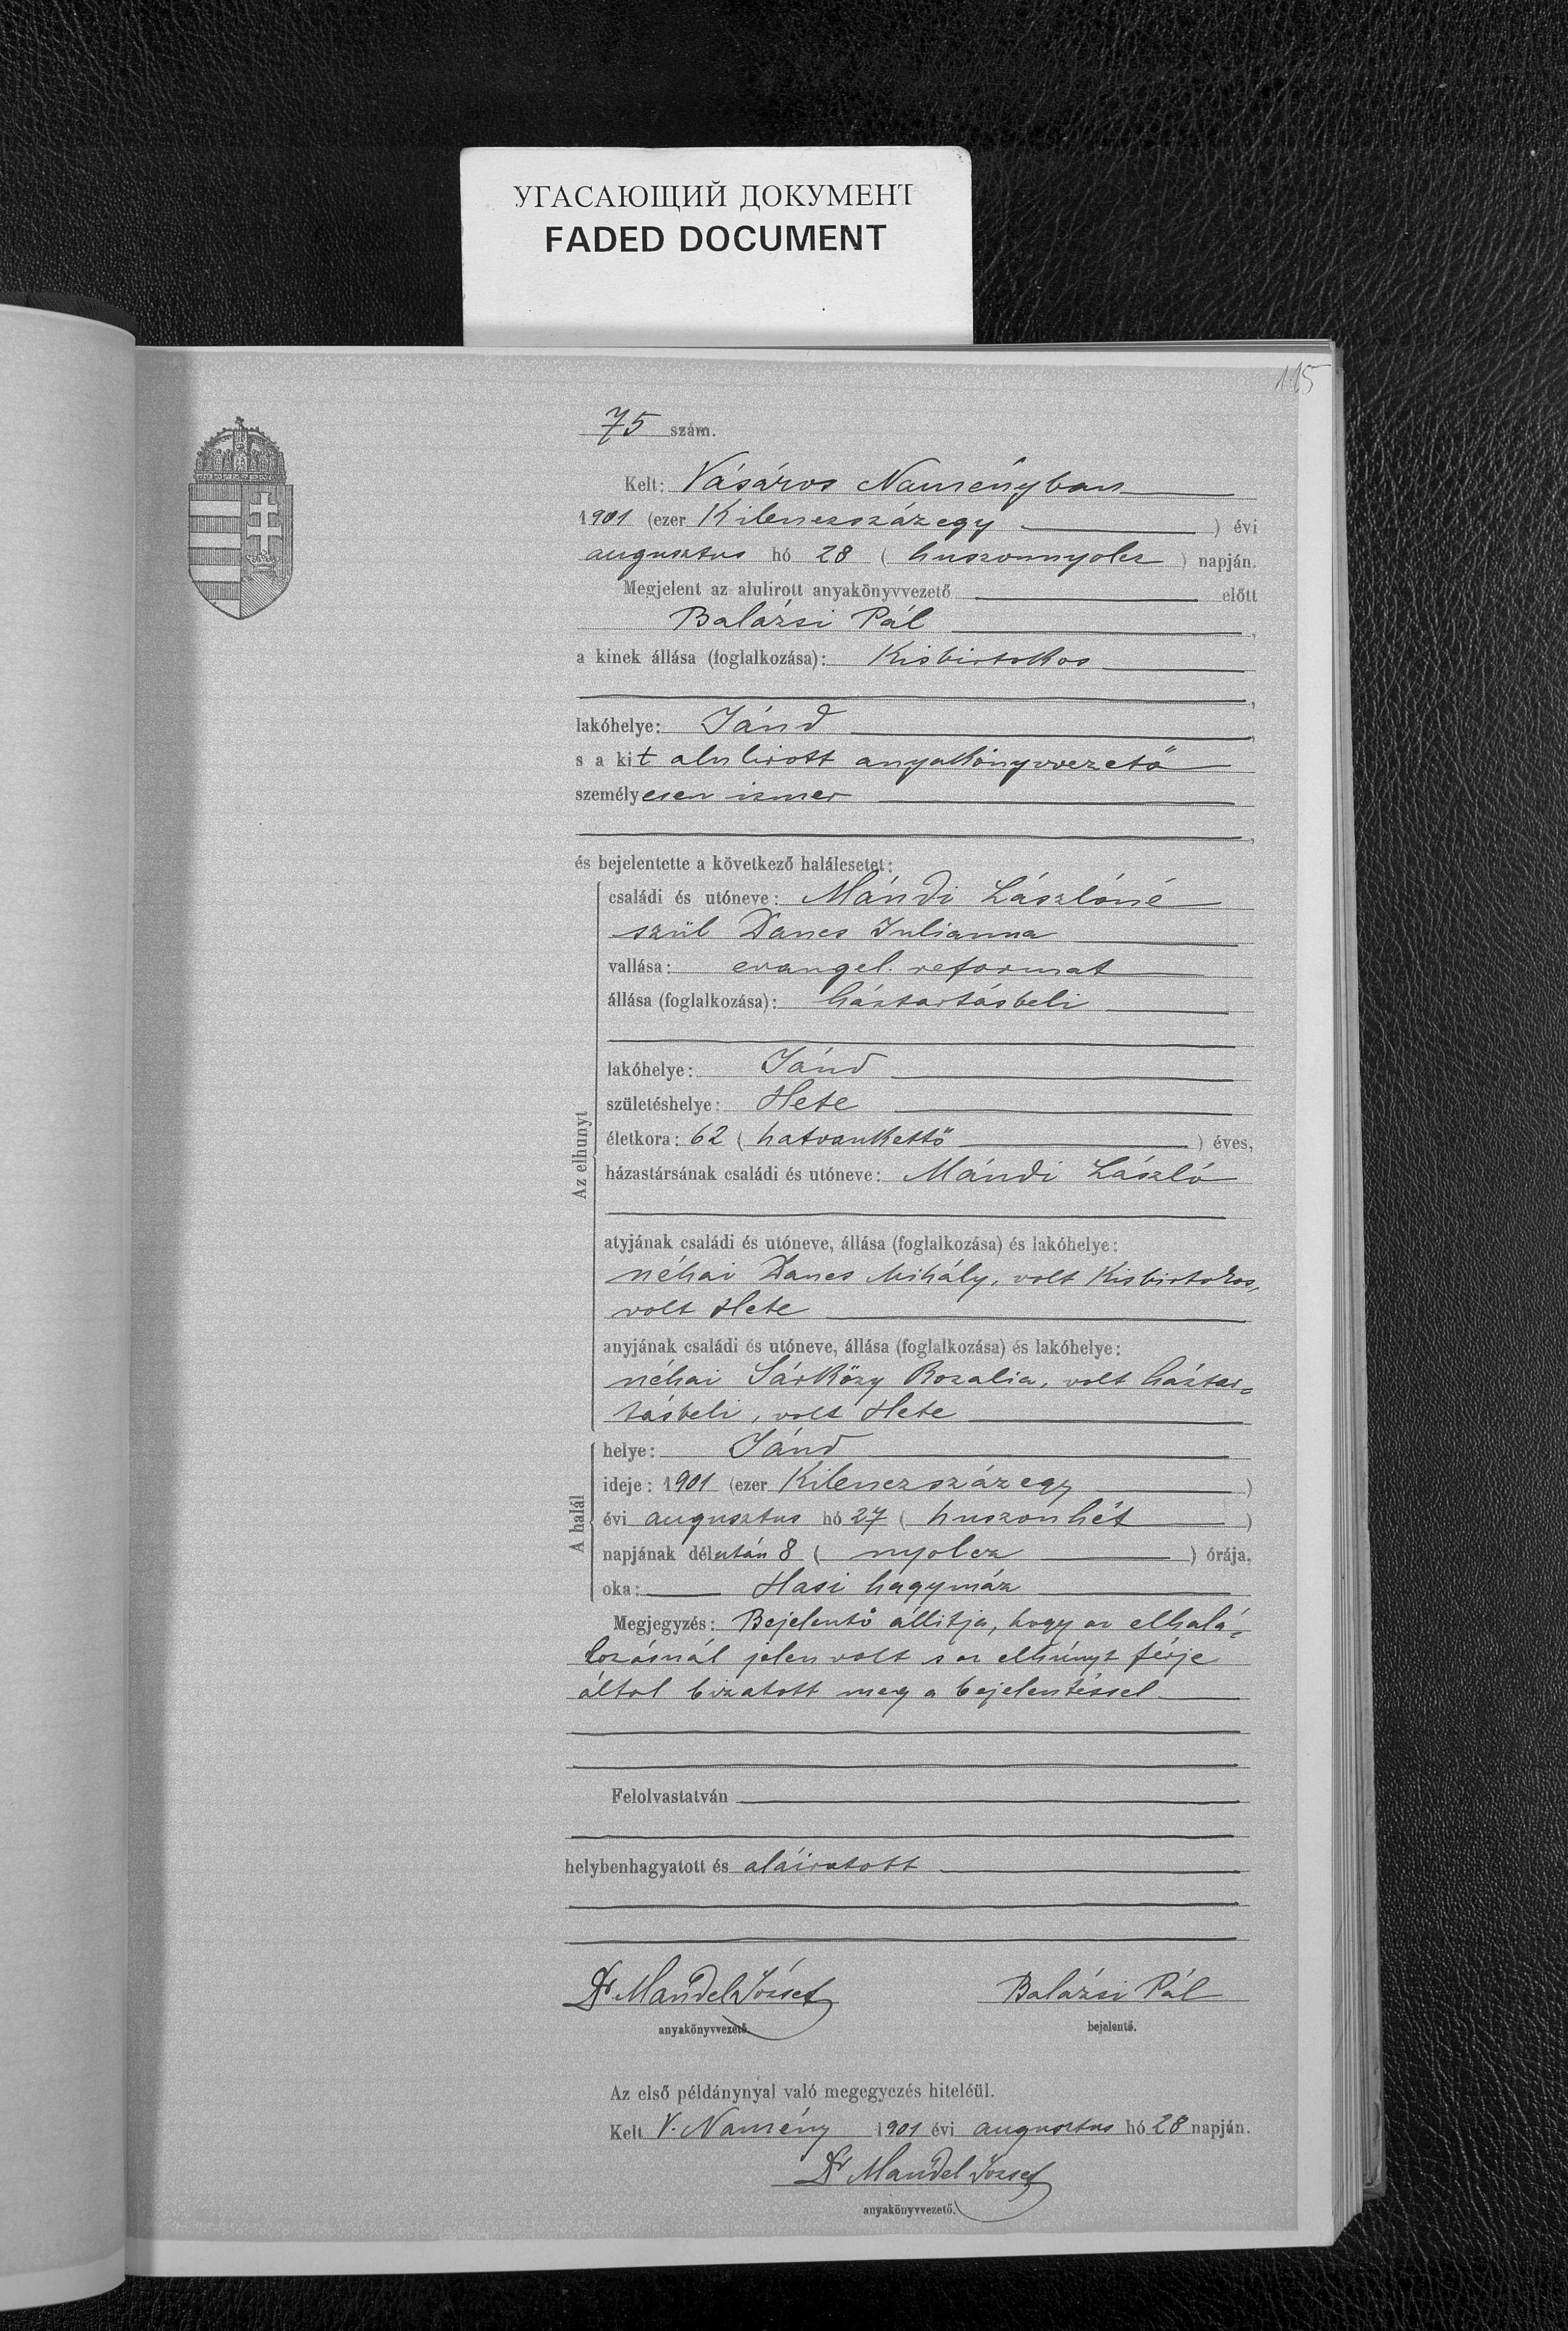 УГАСАЮЩИЙ ДОКУМЕНТ
FADED DOCUMENT
115
75 szám.
Kelt: Vásáros Naményban
1901 (ezer Kilenczszázegy ) évi
augusztus hó 28 ( huszonnyolcz ) napján.
Megjelent az alulirott anyakönyvvezető előtt
Balázsi Pál ,
a kinek állása (foglalkozása): Kisbirtokos
,
lakóhelye: Jánd ,
s a kit alulirott anyakönyvvezető
személyesen ismer
,
és bejelentette a következő halálesetet:
Az elhunyt
családi és utóneve: Mándi Lászlóné
szül Dancs Julianna
vallása: evangel. reformat
állása (foglalkozása): háztartásbeli
lakóhelye: Jánd
születéshelye: Hete
életkora: 62 ( hatvankettő ) éves,
házastársának családi és utóneve: Mándi László
atyjának családi és utóneve, állása (foglalkozása) és lakóhelye:
néhai Dancs Mihály, volt Kisbirtokos,
volt Hete
anyjának családi és utóneve, állása (foglalkozása) és lakóhelye:
néhai Sárközy Rozalia, volt háztar=
tásbeli, volt Hete
A halál
helye: Jánd
ideje: 1901 (ezer Kilenczszázegy )
évi augusztus hó 27 ( huszonhét )
napjának délután 8 ( nyolcz ) órája,
oka: Hasi hagymáz
Megjegyzés: Bejelentő állitja, hogy az elhalá=
lozásnál jelen volt s az elhúnyt férje
által bizatott meg a bejelentéssel
Felolvastatván
helybenhagyatott és aláiratott
Dr Mandel József Balázsi Pál
anyakönyvvezető. bejelentő.
Az első példánynyal való megegyezés hiteléül.
Kelt V. Namény 1901 évi augusztus hó 28 napján.
Dr Mandel József
anyakönyvvezető.